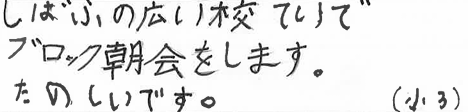 しばふの広い校ていで
ブロック朝会をします。
たのしいです。 (小3)